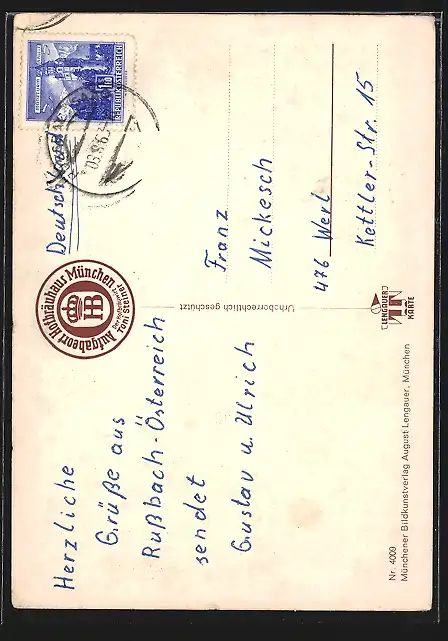 Herzliche
Grüße aus
Rußbach-Österreich
sendet
Gustav u. Ulrich
Deutschland
Franz
Mickesch
476 Werl
Kettler-Str. 15
Aufgabeort Hofbräuhaus München
HB
Toni Steiner
Urheberrechtlich geschützt
LENGAUER
KARTE
Nr. 4009
Münchener Bildkunstverlag August Lengauer, München
REPUBLIK ÖSTERREICH